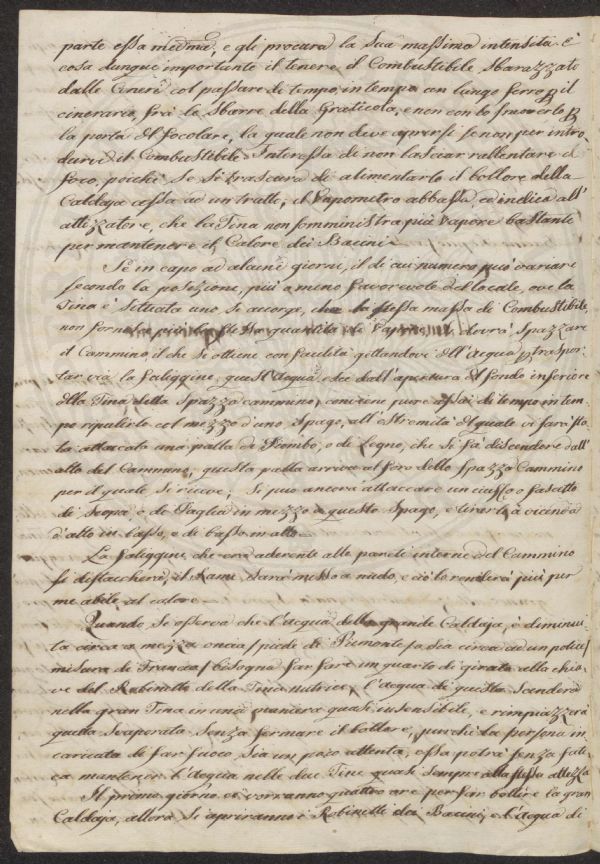 parte essa medma, e gli procura la sua massima intensità. È
cosa dunque importante il tenere il Combustibile sbarazzato
dalle Cineri col passare di tempo in tempo un lungo ferro p il
cinerario, frà le sbarre della Graticola, e non con lo smoverlo p
la porta del focolare, la quale non deve aprirsi se non per intro
durvi il Combustibile. Interessa di non lasciar rallentare il
foco, poichè se si trascura di alimentarlo il bollore della
Caldaja cessa ad un tratto; il Vapometro abbassa, ed indica all'
attizzatore, che la Tina non somministra più vapore bastante
per mantenere il Calore dei Bacini.
Se in capo ad alcuni giorni, il di cui numero può variare
secondo la posizione, più o meno favorevole del locale, ove la
Tina è situata uno si accorge, che la stessa massa di Combustibile,
non fornisca più la stessa quantità di Vapore dovrà spazzare
il Cammino, il che si ottiene con facilità gettandovi dell'Acqua p traspor
tar via la faliggine, quest'Acqua esce dall'apertura del fondo inferiore
della Tina detta spazza cammino, conviene pure assai di tempo in tem
po ripulirlo col mezzo d'uno spago, all'estremità del quale vi sarà sta
ta attaccata una palla di Piombo, o di legno, che si fà discendere dall'
alto del Cammino, questa palla arriva al foro dello spazza Cammino
per il quale si riceve; si può ancora attaccare un ciuffo o fascetto
di scopa o di Paglia in mezzo a questo spago, e tirarlo a vicenda
d'alto in basso, e di basso in alto.
La faliggine, che era aderente alle pareti interne del Cammino
si distaccherà, il Rame sarà messo a nudo, e ciò lo renderà più per
meabile al calore.
Quando si osserva che l'acqua della grande Caldaja, è diminui
ta circa a mezza oncia / piede di Piemonte / o sia circa ad un police /
misura di Francia / bisogna far fare un quarto di girata alla chia
ve del Rubinetto della Tina nutrice, l'acqua di questa scenderà
nella gran Tina in una maniera quasi insensibile, e rimpiazzerà
quella svaporata senza fermare il bollore, purchè la persona in
caricata di far fuoco sia un poco attenta, essa potrà senza fati
ca mantener l'Acqua nelle due Tine quasi sempre alla stessa altezza.
Il primo giorno ci vorranno quattro ore per far bollire la gran
Caldaja, allora si apriranno i Robinetti dei Bacini, e l'acqua di